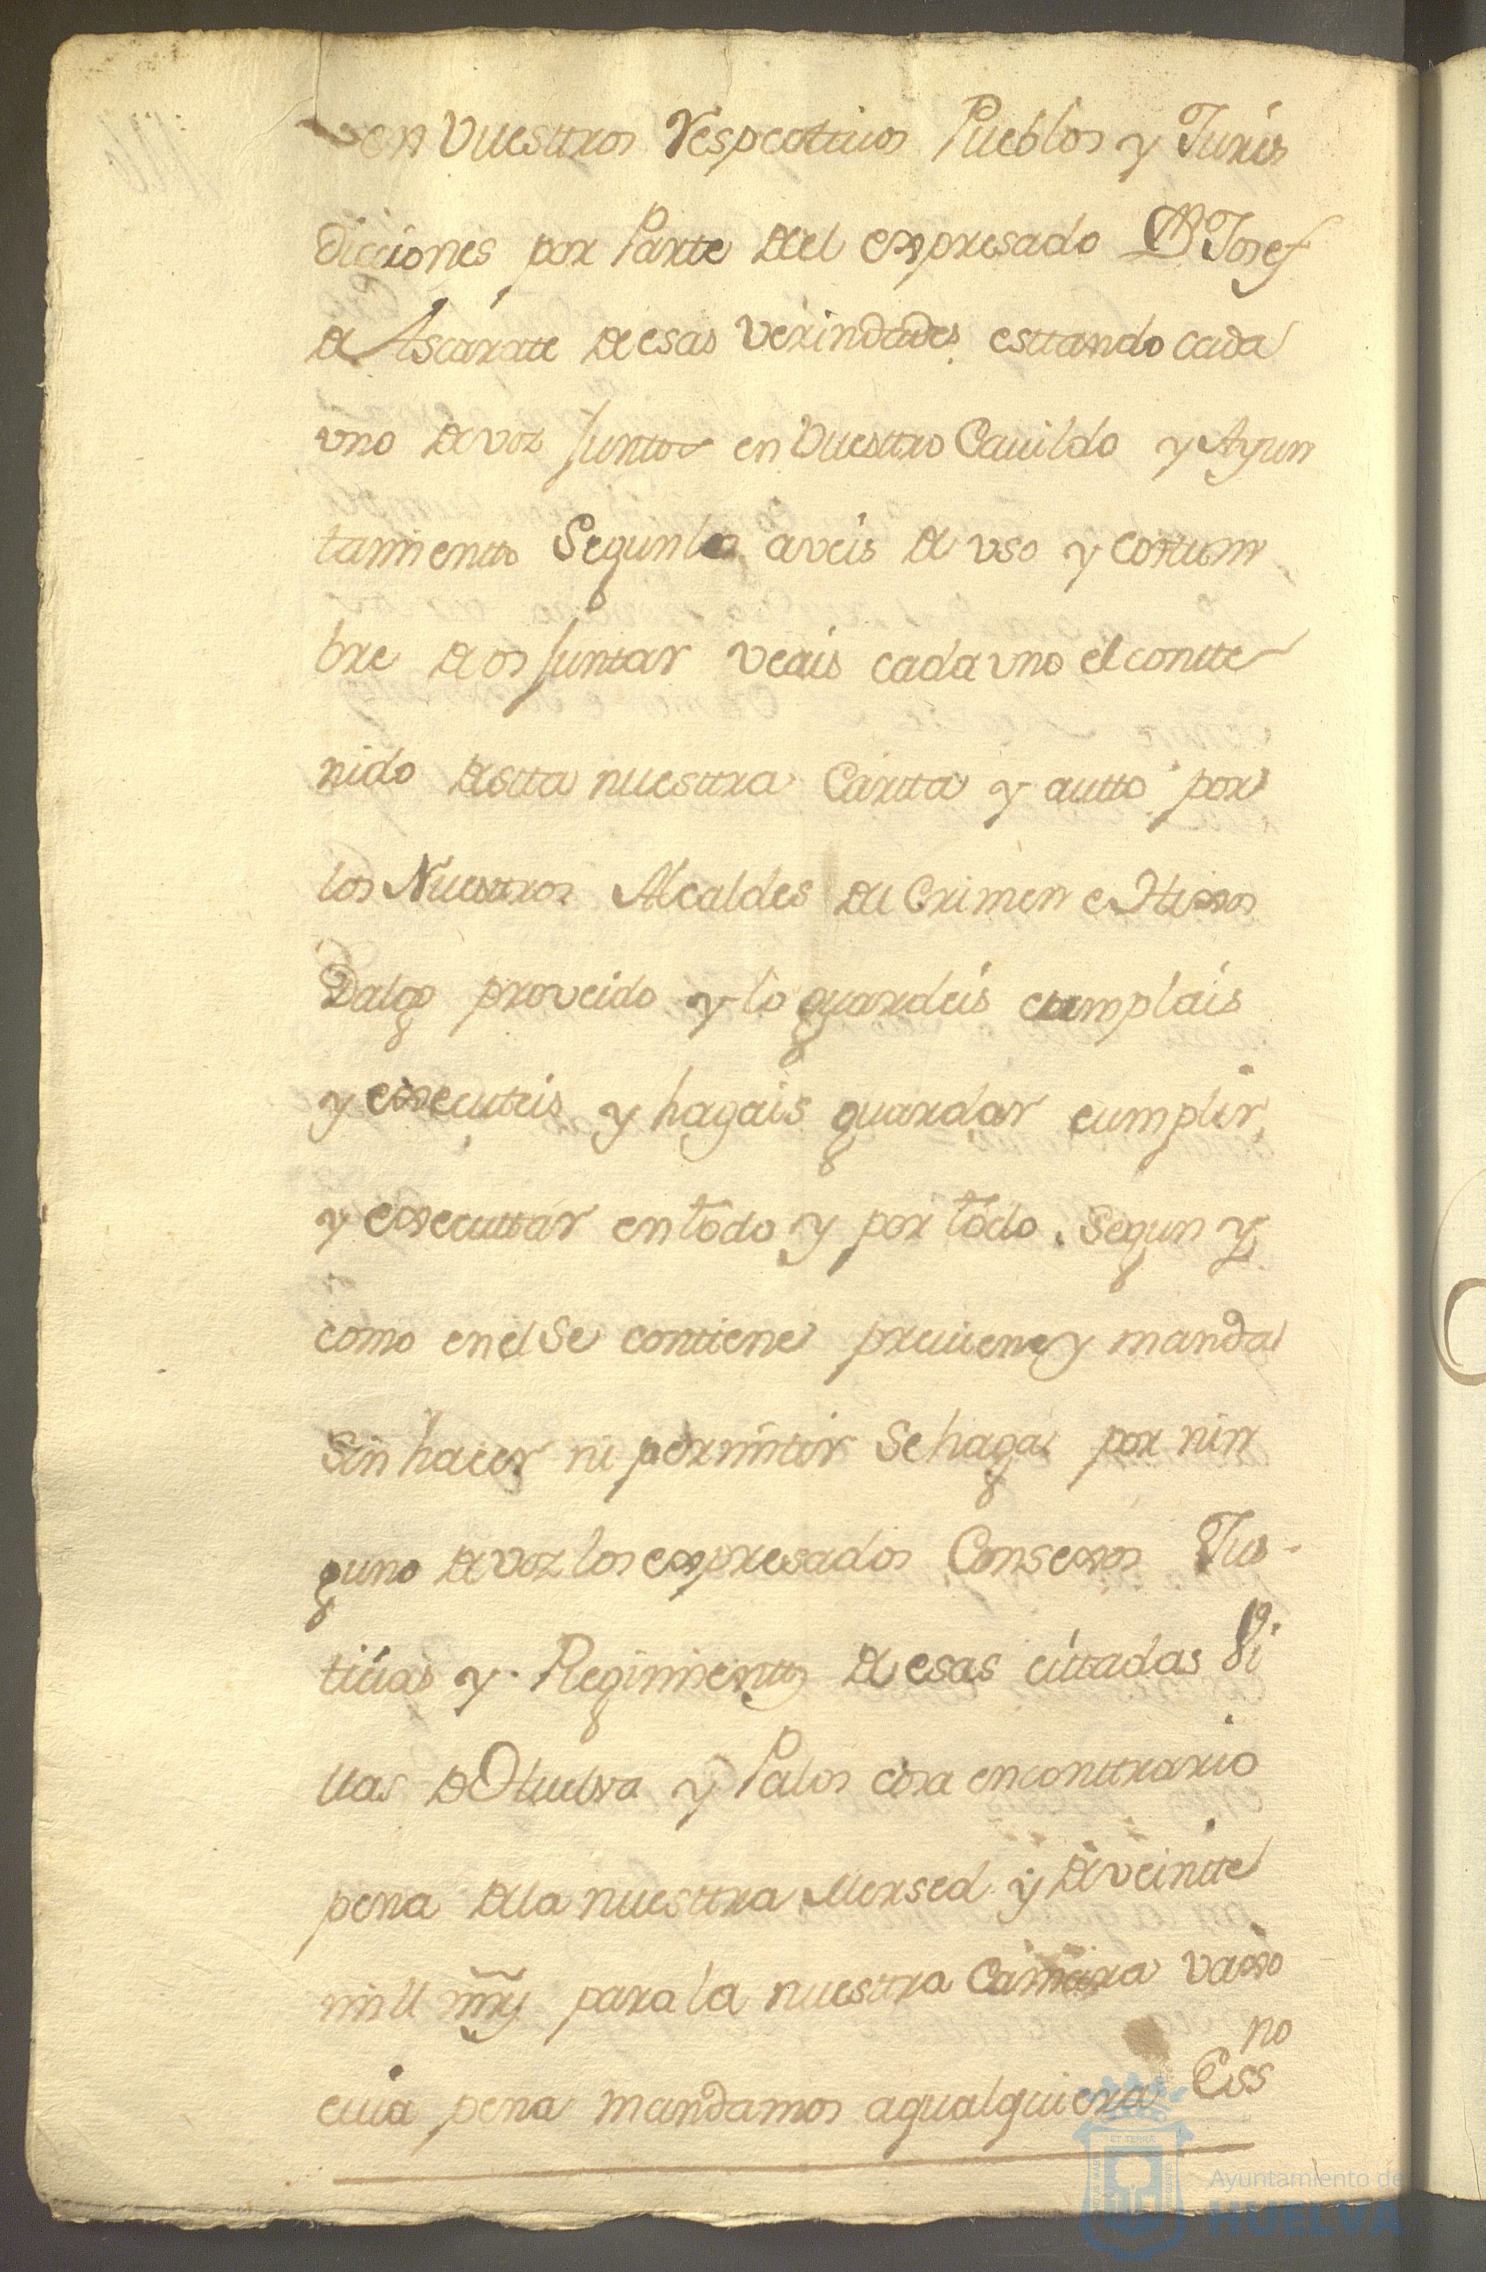 en Vuesttros respecttiuos Pueblos y Juris
dicciones por Parte del expresado Dn Josef
de Ascarate de esas Verindades esttando cada
vno de voz junttos en Vuesttro Cauildo y Ayun
tamientto Segun lo aveis de vso y costum
bre de os junttar veais cada vno el contte
nido destta nuesttra Cartta y autto por
los Nuesttros Alcaldes del Crimen e Hixos
Dalgo proveido y lo guardeis cumplais
y executeis y hagais guardar cumplir,
y executtar en todo y por todo segun y
como en el Se conttiene preuiene y manda
Sin hacer ni permittir Se haga por nin
guno de voz los expresados Consexos Jus-
ticias y Regimienttos de esas cittadas Vi
llas de Huelva y Palos cosa en conttrario
pena de la nuesttra Mersed y de veintte
mill mrs para la nuesttra Camara vaxo
cuia pena mandamos a qualquiera Essno
Ayuntamiento de
HUELVA